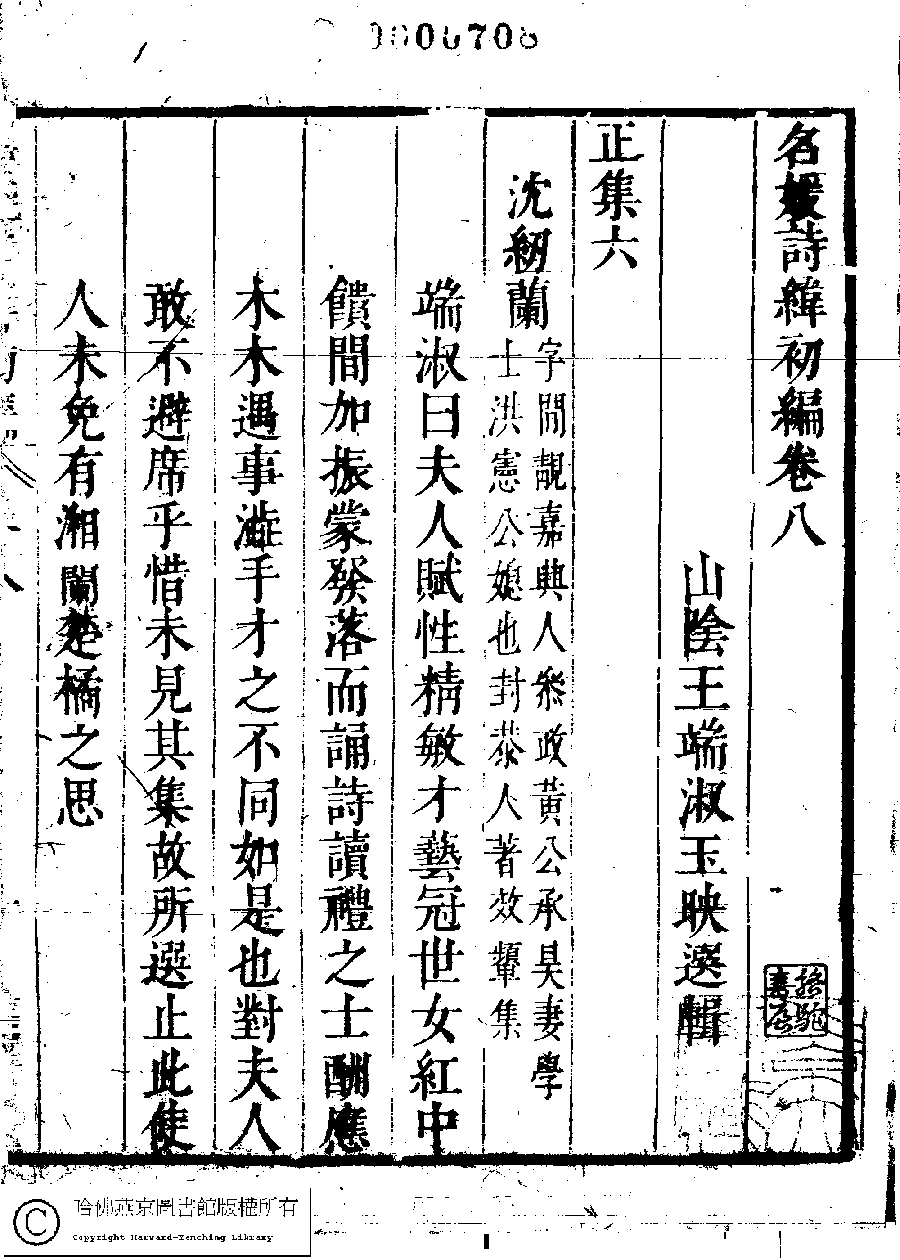 0000708
名媛詩緯初編卷八
山陰王端淑玉映選輯
正集六
沈紉蘭
字閒靚嘉興人叅政黃公承昊妻學
士洪憲公媳也封恭人著效顰集
端淑曰夫人賦性精敏才藝冠世女紅中
饋間加振蒙發落而誦詩讀禮之士酬應
木木遇事澁手才之不同如是也對夫人
敢不避席乎惜未見其集故所選止此使
人未免有湘蘭楚橘之思
哈佛燕京圖書館版權所有
Copyright Harvard-Yenching Library